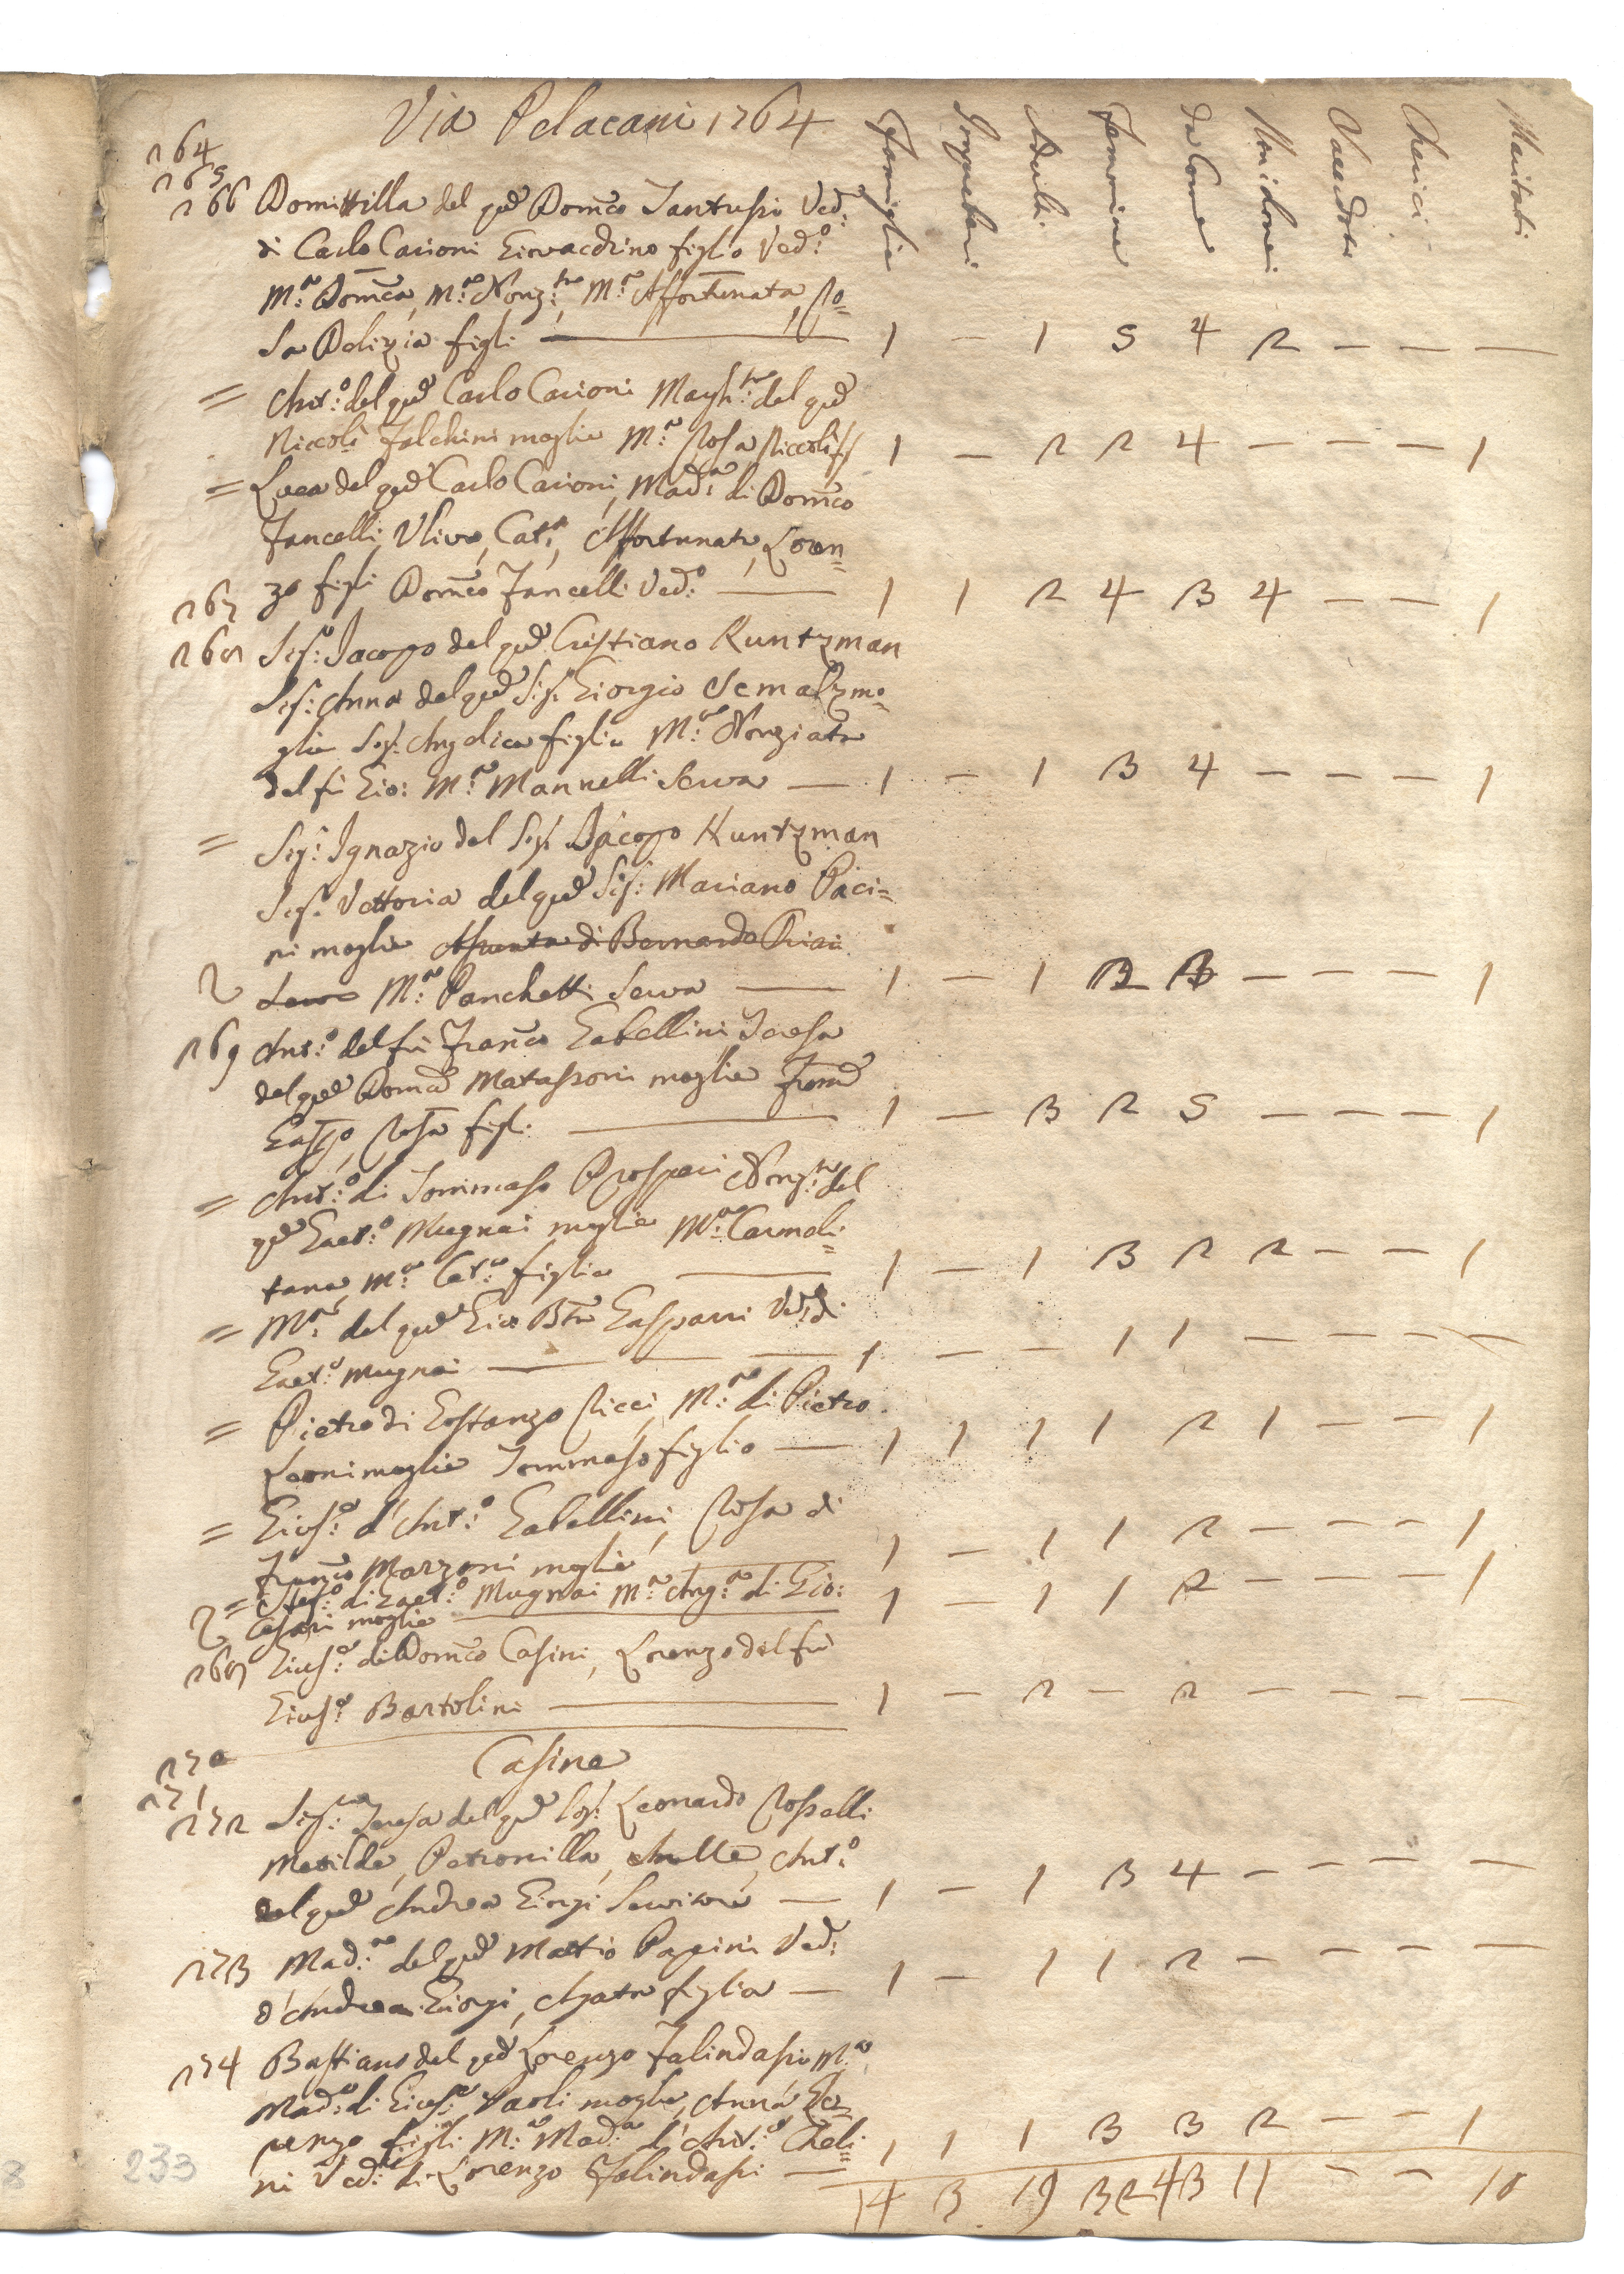 Via Pelacani 1764
Famiglie Impuberi Adulti Femmine da Com.e Non idonei Sacerdoti Cherici Maritati
264
265
266 Domitilla del qd Dom.co Santussi Ved.
di Carlo Carioni Giovacchino figlio Ved.o
M.a Dom.ca, M.a Nonz.ta, M.a Affortunata, Ro=
sa Polizia figli — 1 - 1 5 4 2 - - -
= Ant.o del qd Carlo Carioni Margh.ta del qd
Niccolò Falchini moglie M.a Rosa Niccolò ff 1 - 2 2 4 - - - 1
= Luca del qd Carlo Carioni, Mad.a di Dom.co
Fancelli, Uliva, Cat.a, Affortunata, Loren=
zo figli Dom.co Fancelli Ved.o — 1 1 2 4 3 4 - - 1
267
268 Sig.o Jacopo del qd Cristiano Kuntzman
Sig.a Anna del qd Sig. Giorgio Scmalz mo=
glie Sig. Angelica figlia M.a Nonziata
del fù Gio: M.a Mannelli Serva — 1 - 1 3 4 - - - 1
= Sig.r Ignazio del Sig. Jacopo Kuntzman
Sig.a Vettoria del qd Sig. Mariano Paci=
ni moglie Assunta di Bernardo Priai
Serva M.a Panchetti Serva — 1 - 1 2 3 - - - 1
269 Ant.o del fù Fran.co Gabellini Teresa
del qd Dom.co Matassoni moglie Fran.co
Gasp.o, Rosa figli — 1 - 3 2 5 - - - 1
= Ant.o di Tommaso Prosperi Nonz.ta del
qd Gaet.o Mugnai moglie M.a Carmeli=
tana, M.a Cat.a figlie — 1 - 1 3 2 2 - - 1
= M.a del qd Gio Bta Gasparri Ved. di
Gaet.o Mugnai — 1 - - 1 1 - - - -
= Pietro di Gostanzo Ricci, M.a di Pietro
Leoni moglie Tommaso figlio — 1 1 1 1 2 1 - - 1
= Gius.e d'Ant.o Gabellini, Rosa di
Fran.co Marzoni moglie 1 - 1 1 2 - - - 1
= Stef.o di Gaet.o Mugnai M.a Ang.a di Gio:
Cesari moglie — 1 - 1 1 2 - - - 1
269 Gius.e di Dom.co Casini, Lorenzo del fù
Gius.e Bartolini — 1 - 2 - 2 - - - -
Casine
270
271
272 Sig.ra Teresa del qd Sig. Leonardo Rosselli
Matilde, Petronilla, Ant.o
del qd Andrea Giorgi Servitore — 1 - 1 3 4 - - - -
273 Mad.a del qd Mattio Papini Ved.
d'Andrea Giorgi, Agata figlia — 1 - 1 1 2 - - - -
274 Bastiano del qd Lorenzo Falindassi M.a
Mad.a di Gius.e Paoli moglie, Anna Lo=
renzo figli M.a Mad.a d'Ant.o Cheli=
ni Ved. di Lorenzo Falindassi — 1 1 1 3 3 2 - - 1
14 3 19 32 43 11 - - 10
233